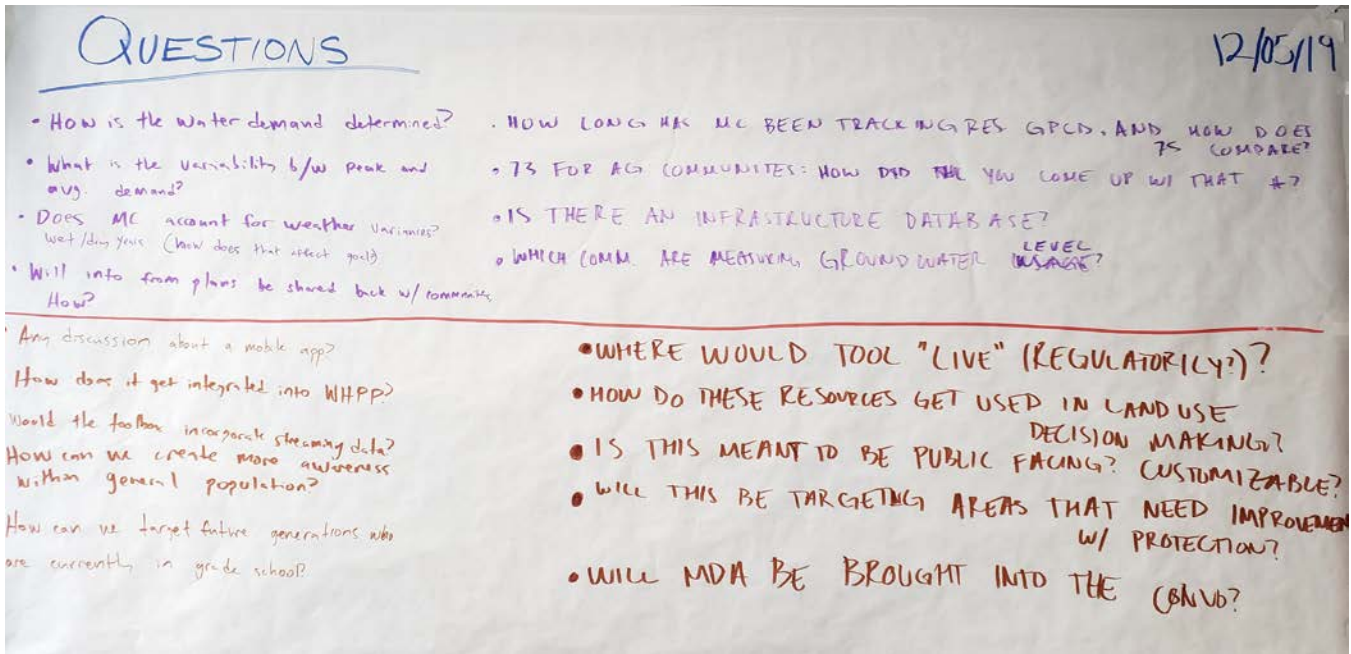 QUESTIONS
12/05/19
• How is the water demand determined?
• What is the variability b/w peak and
avg. demand?
• Does MC account for weather variances?
wet/dry years (how does that affect goals)
• Will info from plans be shared back w/ communities
How?
• HOW LONG HAS MC BEEN TRACKING RES GPCD, AND HOW DOES
75 COMPARE?
• 73 FOR AG COMMUNITES: HOW DID YOU COME UP W/ THAT #?
• IS THERE AN INFRASTRUCTURE DATABASE?
LEVEL
• WHICH COMM. ARE MEASURING GROUND WATER USAGE?
• Any discussion about a mobile app?
How does it get integrated into WHPP?
Would the toolbox incorporate streaming data?
How can we create more awareness
within general population?
How can we target future generations who
are currently in grade school?
• WHERE WOULD TOOL "LIVE" (REGULATORILY?)?
• HOW DO THESE RESOURCES GET USED IN LAND USE
DECISION MAKING?
• IS THIS MEANT TO BE PUBLIC FACING? CUSTOMIZABLE?
• WILL THIS BE TARGETING AREAS THAT NEED IMPROVEMEN
W/ PROTECTION?
• WILL MDA BE BROUGHT INTO THE CONVO?